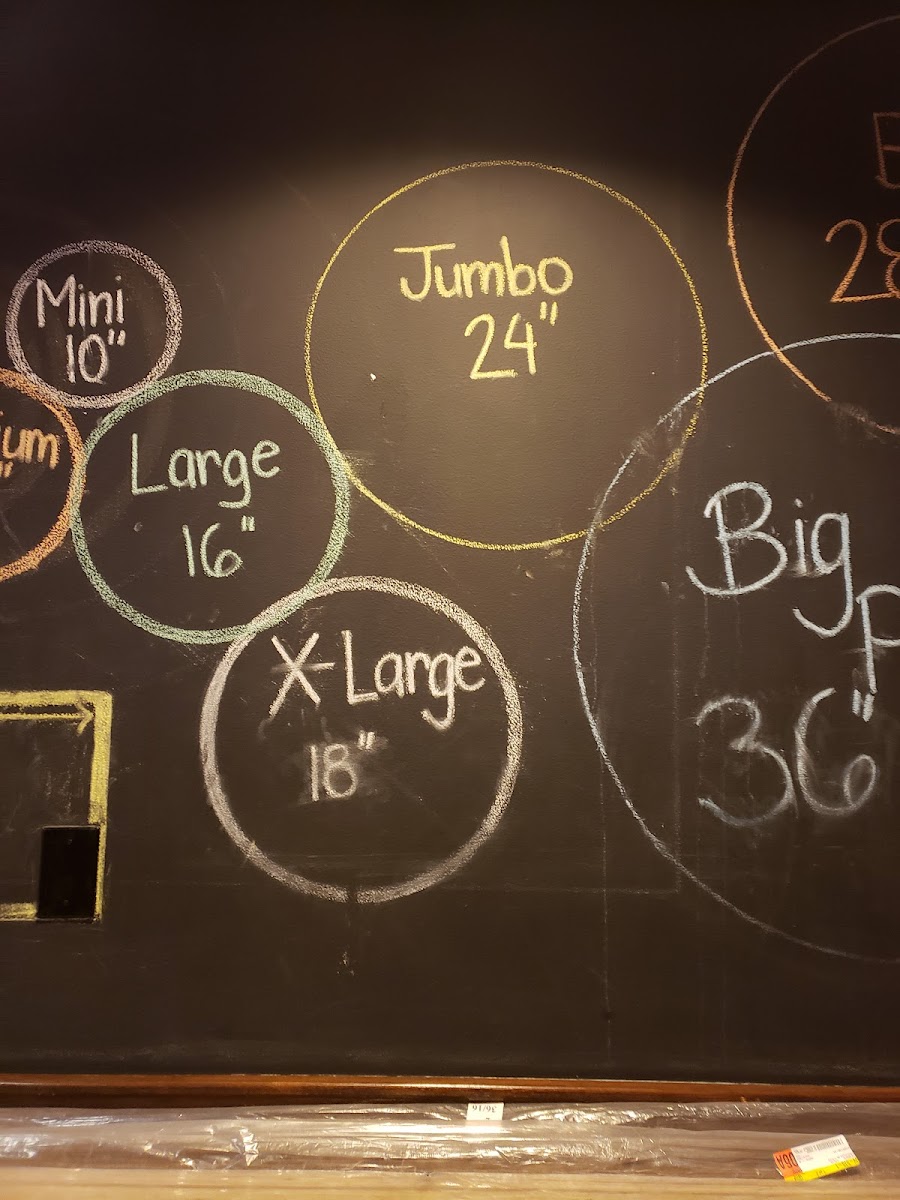 Mini
10"
Large
16"
Jumbo
24"
X-Large
18"
Big
36"
36/16